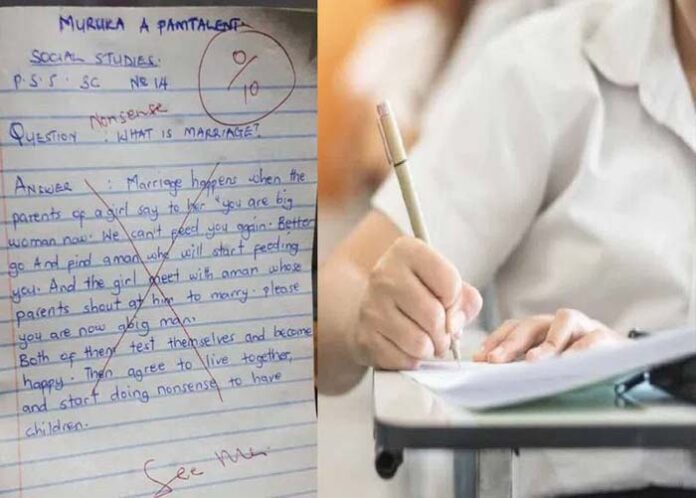 MURUKA A PAMTALENT.
SOCIAL STUDIES.
P.S.S. SC NO 14
0/10
Nonsense
QUESTION : WHAT IS MARRIAGE?
ANSWER : Marriage happens when the
parents of a girl say to her "you are big
woman now. We can't feed you again. Better
go And find aman who will start feeding
you. And the girl meet with aman whose
parents shout at him to marry. please
you are now abig man.
Both of them test themselves and become
happy. Then agree to live together,
and start doing nonsense to have
children.
See Me